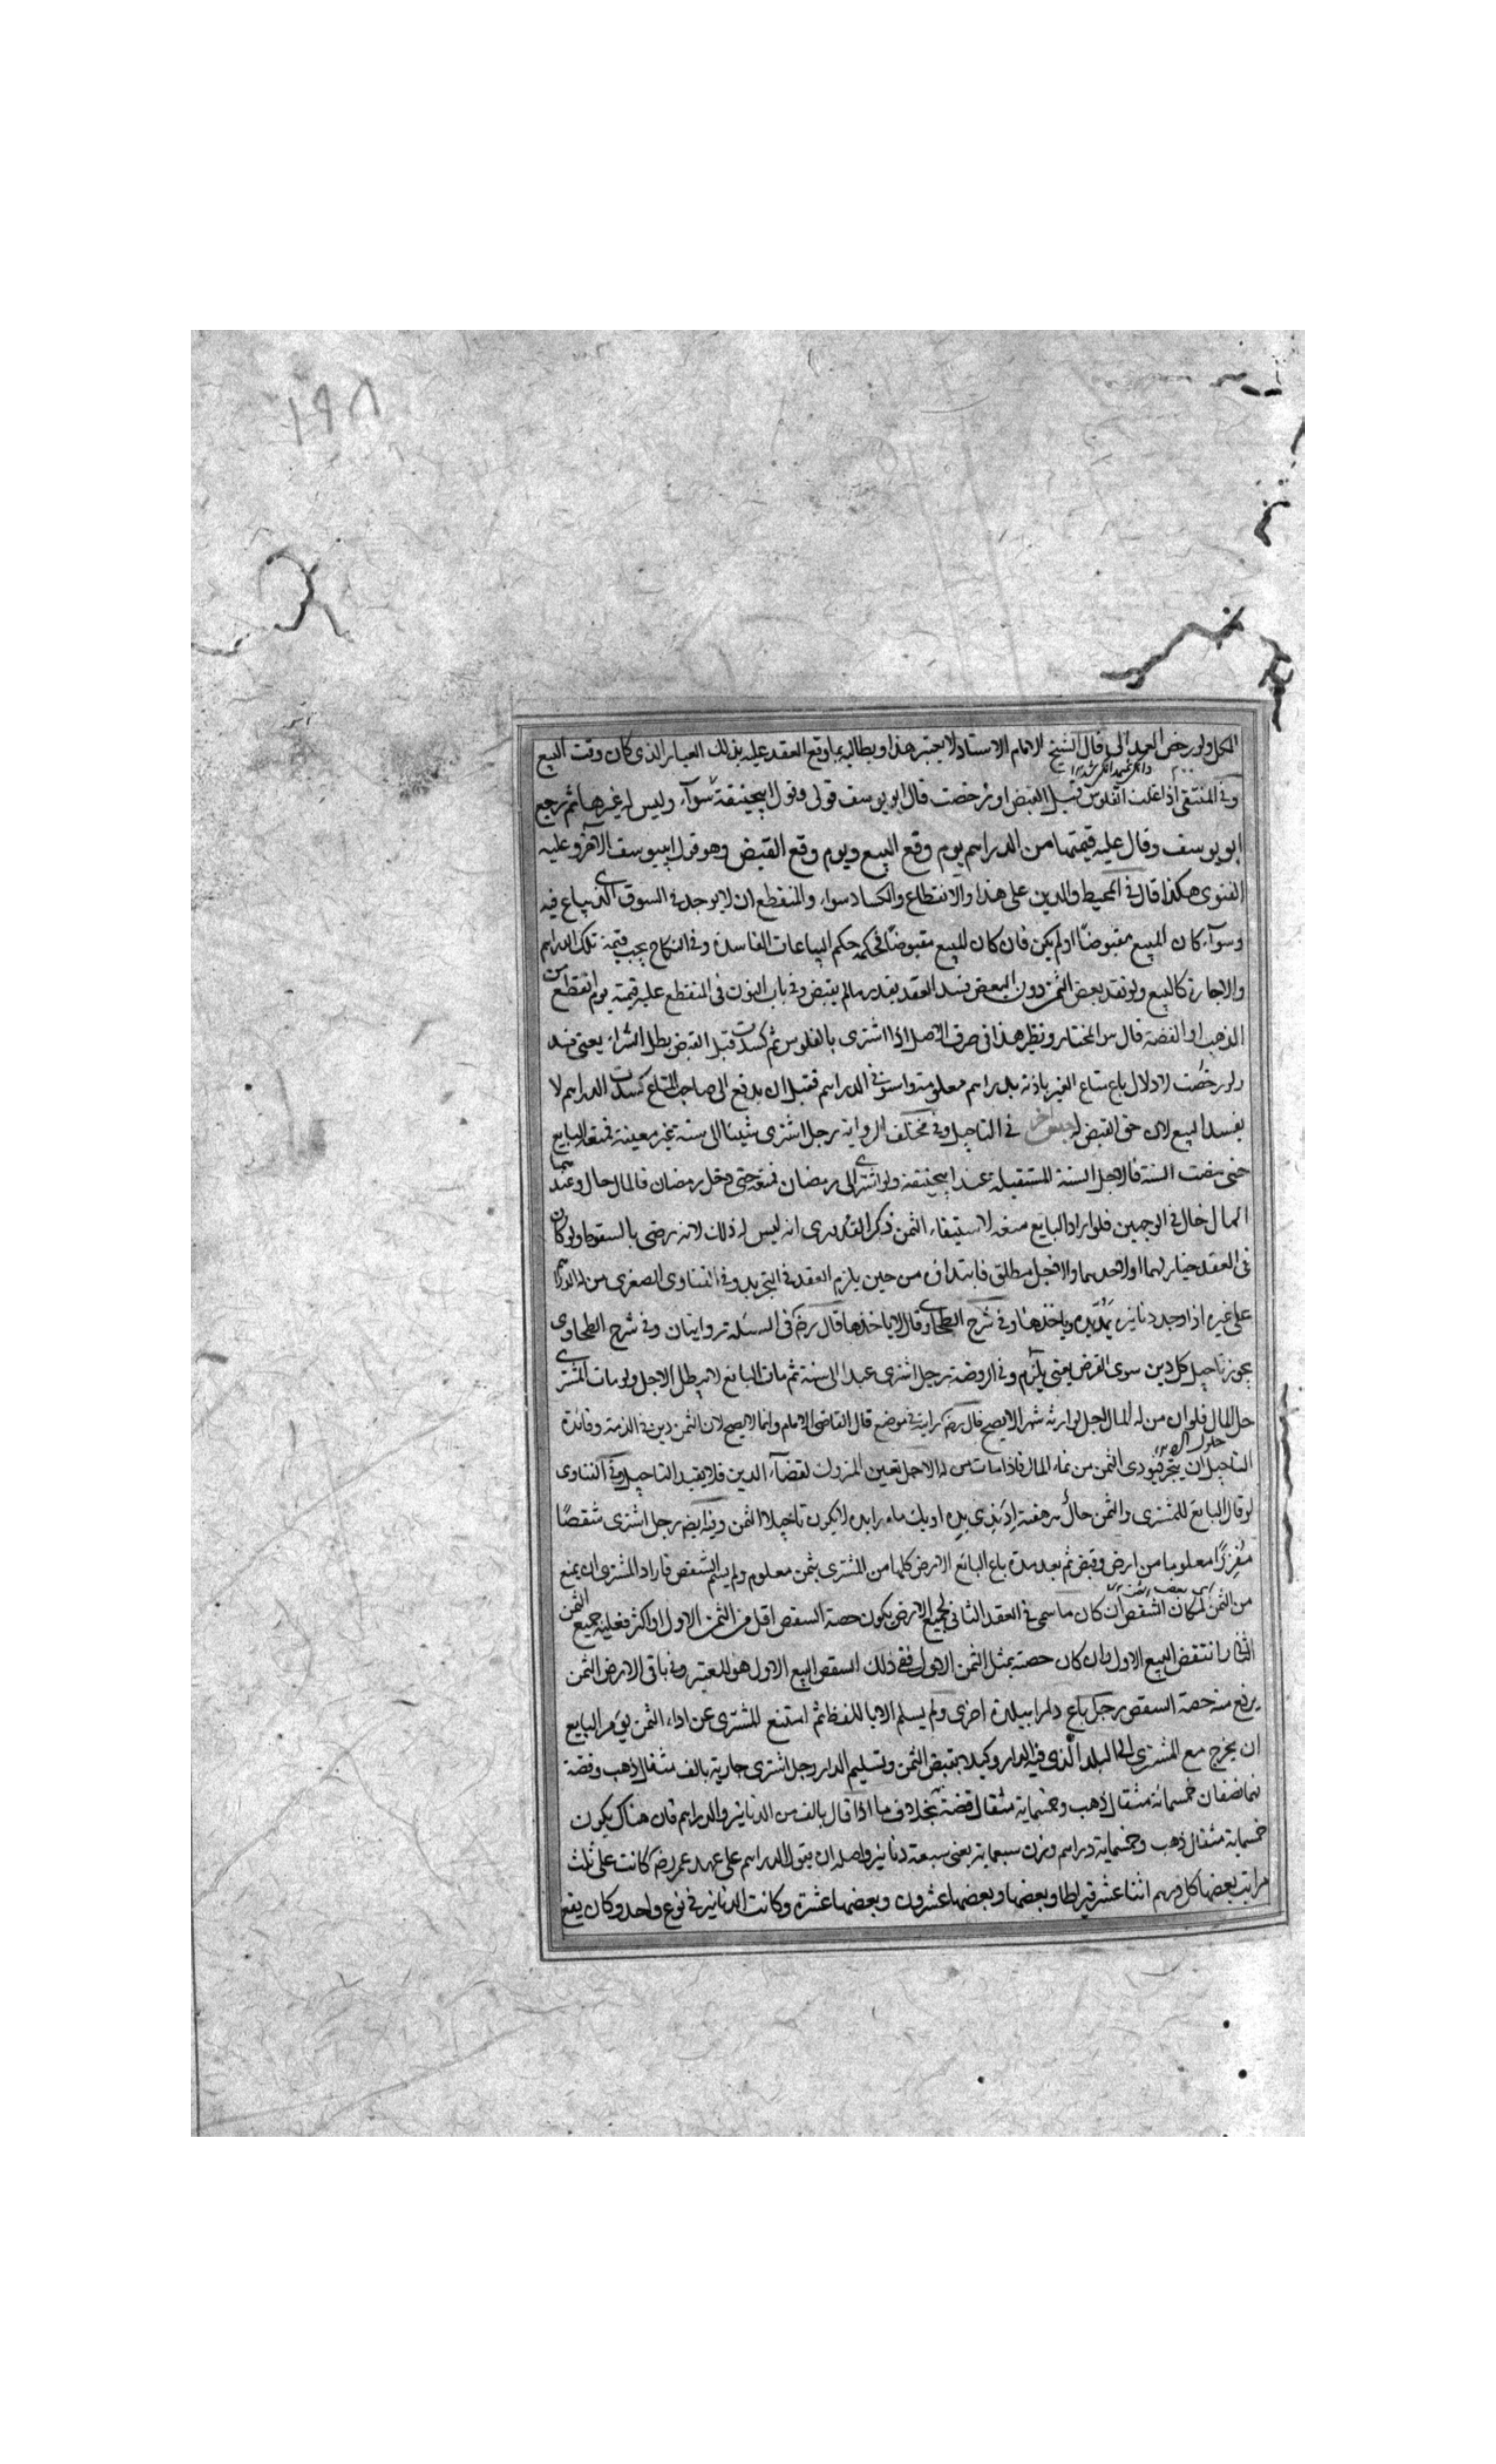 ١٩٨
الكل ولو رخص العبد الى قال الشيخ الامام الاستاد لا يعتبر هذا ويطالبه بما وقع العقد عليه بذلك العيار الذى كان وقت البيع
وفى المنتقى اذا غلت الفلوس قبل القبض او رخصت قال ابو يوسف قولى وقول ابيحنيفة سوآء وليس له غيرها ثم رجع
ابو يوسف وقال عليه قيمتها من الدراهم يوم وقع البيع ويوم وقع القبض وهو قول ابييوسف الاخر وعليه
الفتوى هكذا قال فى المحيط والدين على هذا والانقطاع والكساد سواء والمنقطع ان لا يوجد فى السوق الذى يباع فيه
وسوآء كان المبيع مقبوضا او لم يكن فان كان المبيع مقبوضا فحكمه حكم البياعات الفاسدة وفى النكاح يجب قيمة تلك الدراهم
والاجارة كالبيع ولو نقد بعض الثمن دون البعض فسد العقد بقدر مالم يقبض وفى باب النون فى المنقطع عليه قيمته يوم انقطع من
الذهب او الفضة قال هو المختار ونظير هذا فى صرف الاصل اذا اشترى بالفلوس ثم كسدت قبل القبض بطل الشراء يعنى فسد
ولو رخصت لا دلال باع متاع الغير باذنه بدراهم معلومة واستوفى الدراهم فقبل ان يدفع الى صاحب المتاع كسدت الدراهم لا
يفسد البيع لان حق القبض له فى التاجيل وفى مختلف الرواية رجل اشترى شيئا الى سنة غير معينة فمنعه البايع
حتى مضت السنة فالاجل السنة المستقبلة عند ابيحنيفة ولو اشترى الى رمضان فمنعه حتى دخل رمضان فالمال حال وعندهما
المال حال فى الوجهين فلو اراد البايع منعه لاستيفاء الثمن ذكر القدورى انه ليس له ذلك لانه رضى بالسقوط ولو كان
فى العقد خيار لهما او لاحدهما والاجل مطلق فابتداؤه من حين يلزم العقد فى التجريد وفى الفتاوى الصغرى من له الدراهم
على غيره اذا وجد دنانير يمد يده وياخذها وفى شرح الطحاوى قال لا ياخذها قال رض فى المسئلة روايتان وفى شرح الطحاوى
يجوز تاجيل كل دين سوى القرض يعنى يلزم وفى الروضة رجل اشترى عبدا الى سنة ثم مات البائع لا يبطل الاجل ولو مات المشترى
حل المال فلو ان من له المال اجل لوارثه شهرا لا يصح قال رض رايت فى موضع قال القاضى الامام وانما لا يصح لان الثمن دين فى الذمة وفائدة
التاجيل ان يتجر فيؤدى الثمن من نماء المال فاذا مات من له الاجل تعين المتروك لقضآء الدين فلا يفيد التاجيل وفى الفتاوى
لو قال البايع للمشترى والثمن حال هر هفته اد بده او يك ماه را بده لا يكون تاجيلا الثمن وفيه ايضا رجل اشترى شقصا
مفرزا معلوما من ارض وقبض ثم بعد مدة باع البائع الارض كلها من المشترى بثمن معلوم ولم يسم الشقص فاراد المشترى ان يمنع
من الثمن لمكان الشقص ان كان ما سمى فى العقد الثانى لجميع الارض يكون حصة الشقص اقل من الثمن الاول او اكثر فعليه جميع الثمن
الثانى وانتقض البيع الاول وان كان حصته بمثل الثمن الاول ففى ذلك الشقص البيع الاول هو المعتبر وفى باقى الارض الثمن
يرفع منه حصة الشقص رجل باع دارا ببلدة اخرى ولم يسلم الا باللفظ ثم امتنع المشترى عن اداء الثمن يؤمر البايع
ان يخرج مع المشترى الى البلد الذى فيه الدار وكيلا بقبض الثمن وتسليم الدار رجل اشترى جارية بالف مثقال ذهب وفضة
فهما نصفان خمسمائة مثقال ذهب وخمسماية مثقال فضة بخلاف ما اذا قال بالف من الدنانير والدراهم فان هناك يكون
خمسماية مثقال ذهب وخمسماية دراهم وزن سبعة يعنى سبعة دنانير واصله ان يقول الدراهم على عهد عمر رض كانت على ثلث
مراتب بعضها كل درهم اثنا عشر قيراطا وبعضها وبعضها عشرون وبعضها عشرة وكانت الدنانير فى نوع واحد وكان يقع